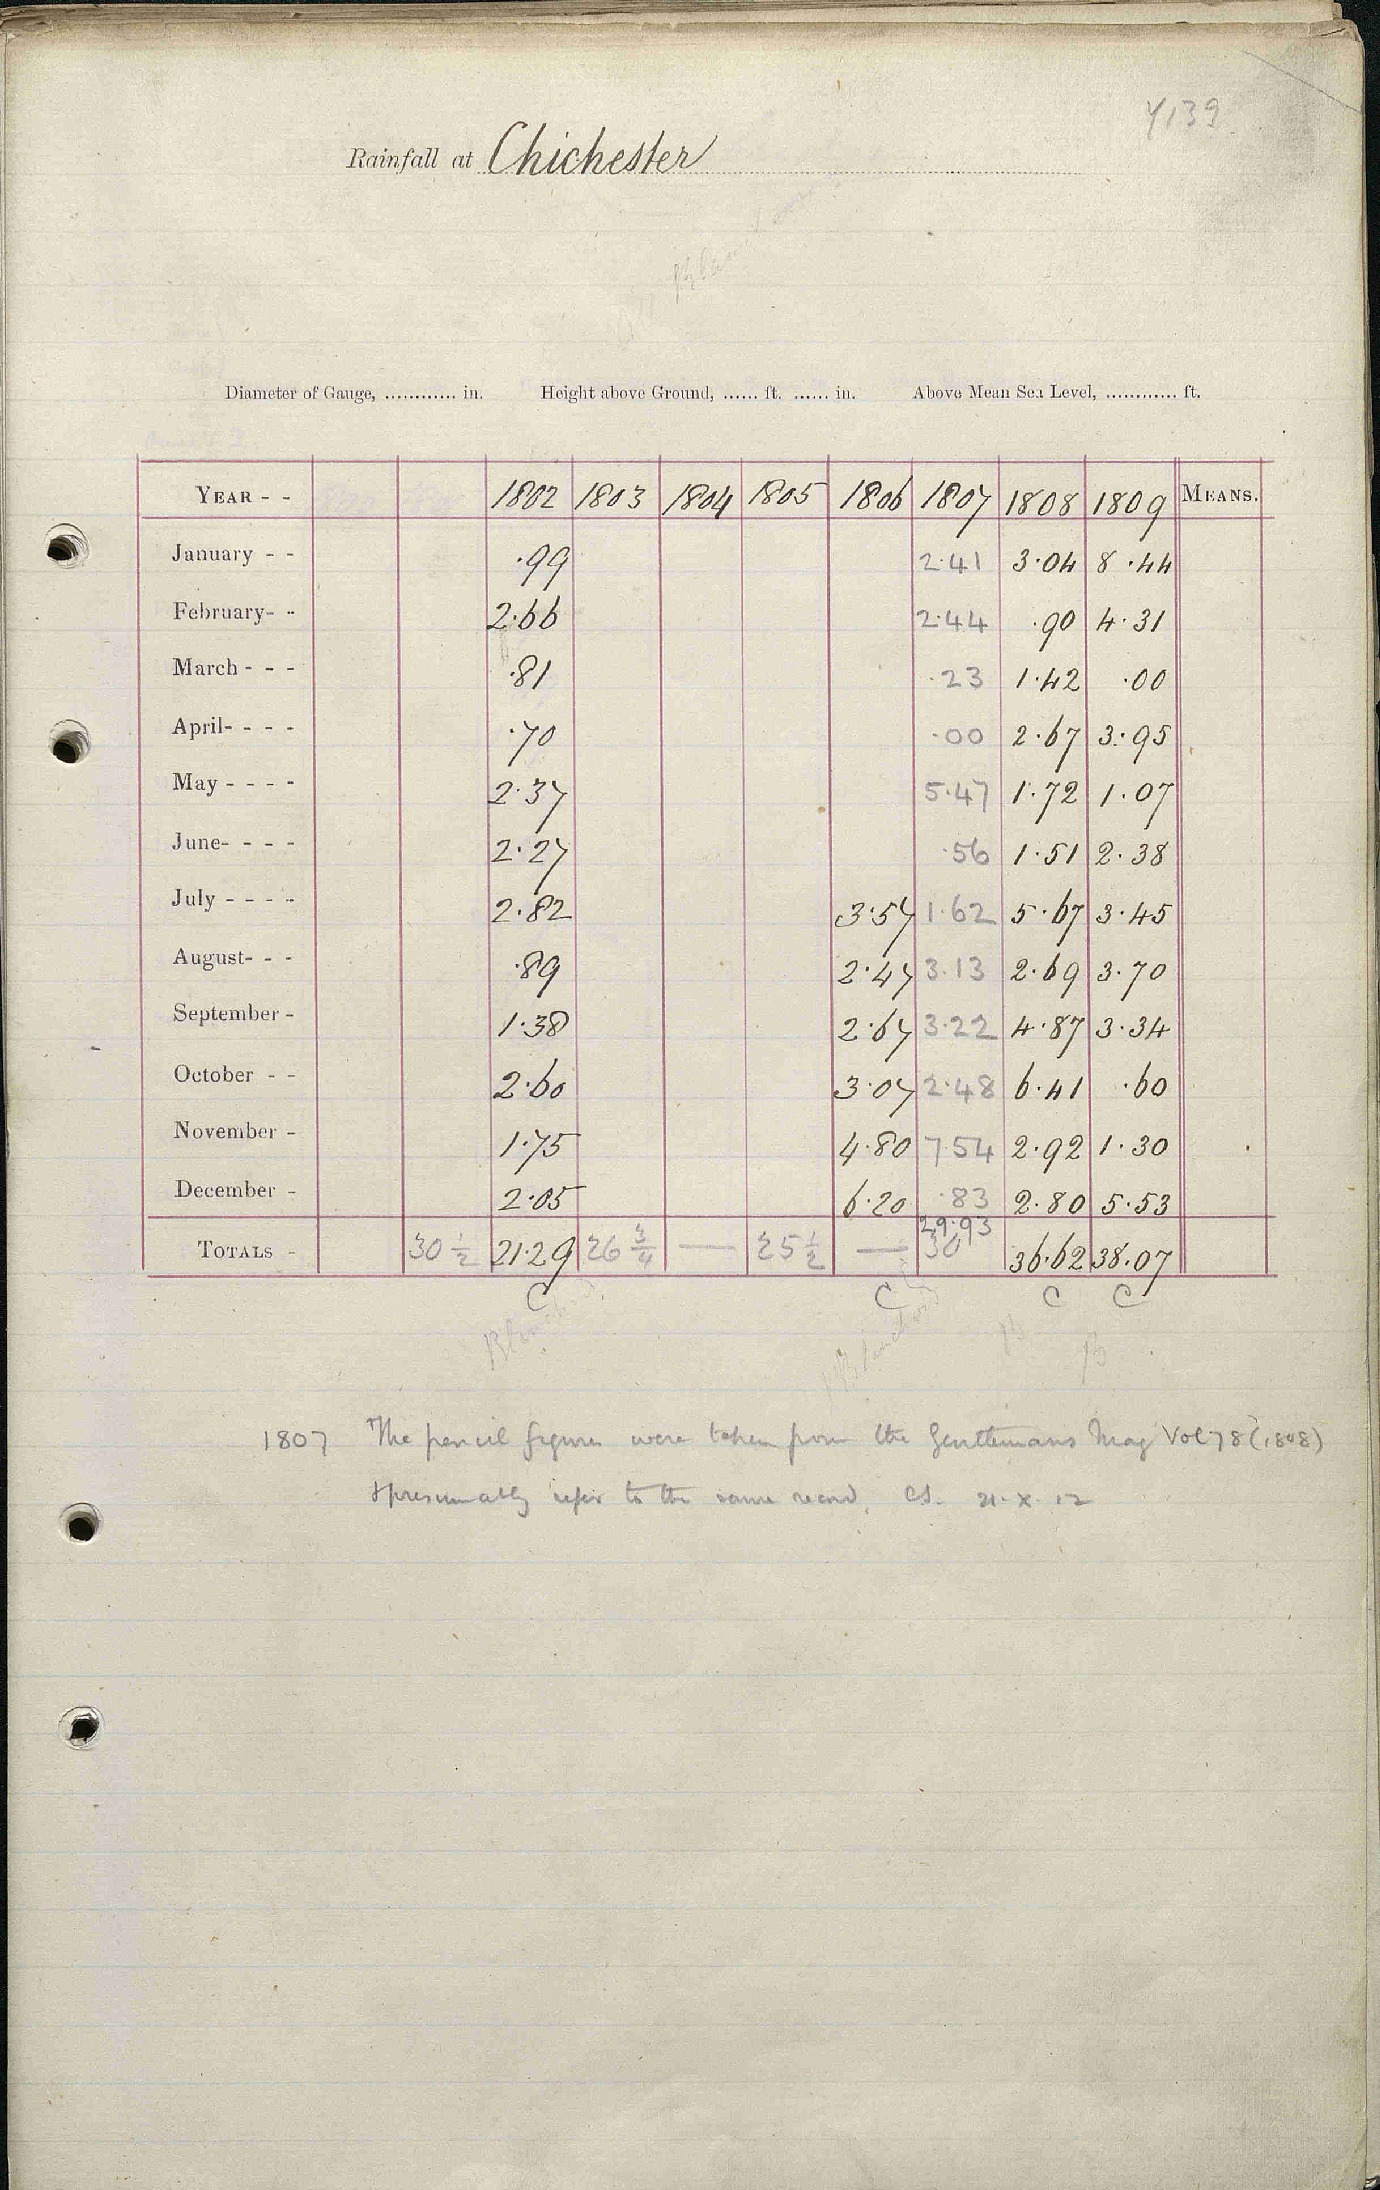 4139
Rainfall at Chichester
Diameter of Gauge, ............ in. Height above Ground, ...... ft. ...... in. Above Mean Sea Level, ............ ft.
YEAR - - 1802 1803 1804 1805 1806 1807 1808 1809 MEANS.
January - - .99 2.41 3.04 8.44
February- - 2.66 2.44 .90 4.31
March - - - .81 .23 1.42 .00
April- - - - .70 .00 2.67 3.95
May - - - - 2.37 5.47 1.72 1.07
June- - - - 2.27 .56 1.51 2.38
July - - - - 2.82 3.57 1.62 5.67 3.45
August- - - .89 2.47 3.13 2.69 3.70
September - 1.38 2.67 3.22 4.87 3.34
October - - 2.60 3.07 2.48 6.41 .60
November - 1.75 4.80 7.54 2.92 1.30
December - 2.05 6.20 .83 2.80 5.53
29.93
TOTALS - 30 1/2 21.29 26 3/4 — 25 1/2 — 30 36.62 38.07
C C C C
Blanchard Blanchard B B
1807 The pencil figures were taken from the Gentlemans Mag Vol 78 (1808)
& presumably refer to the same record. CS. 21.X.12